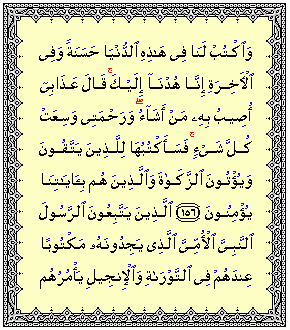 وَٱكۡتُبۡ لَنَا فِي هَٰذِهِ ٱلدُّنۡيَا حَسَنَةٗ وَفِي
ٱلۡأٓخِرَةِ إِنَّا هُدۡنَآ إِلَيۡكَۚ قَالَ عَذَابِيٓ
أُصِيبُ بِهِۦ مَنۡ أَشَآءُۖ وَرَحۡمَتِي وَسِعَتۡ
كُلَّ شَيۡءٖۚ فَسَأَكۡتُبُهَا لِلَّذِينَ يَتَّقُونَ
وَيُؤۡتُونَ ٱلزَّكَوٰةَ وَٱلَّذِينَ هُم بِـَٔايَٰتِنَا
يُؤۡمِنُونَ ١٥٦ ٱلَّذِينَ يَتَّبِعُونَ ٱلرَّسُولَ
ٱلنَّبِيَّ ٱلۡأُمِّيَّ ٱلَّذِي يَجِدُونَهُۥ مَكۡتُوبًا
عِندَهُمۡ فِي ٱلتَّوۡرَىٰةِ وَٱلۡإِنجِيلِ يَأۡمُرُهُم